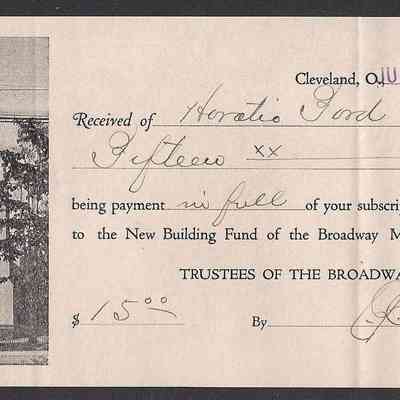 Cleveland, O., JU
Received of Horatio Ford
Fifteen xx
being payment in full of your subscri
to the New Building Fund of the Broadway M
TRUSTEES OF THE BROADWA
$ 15 00 By